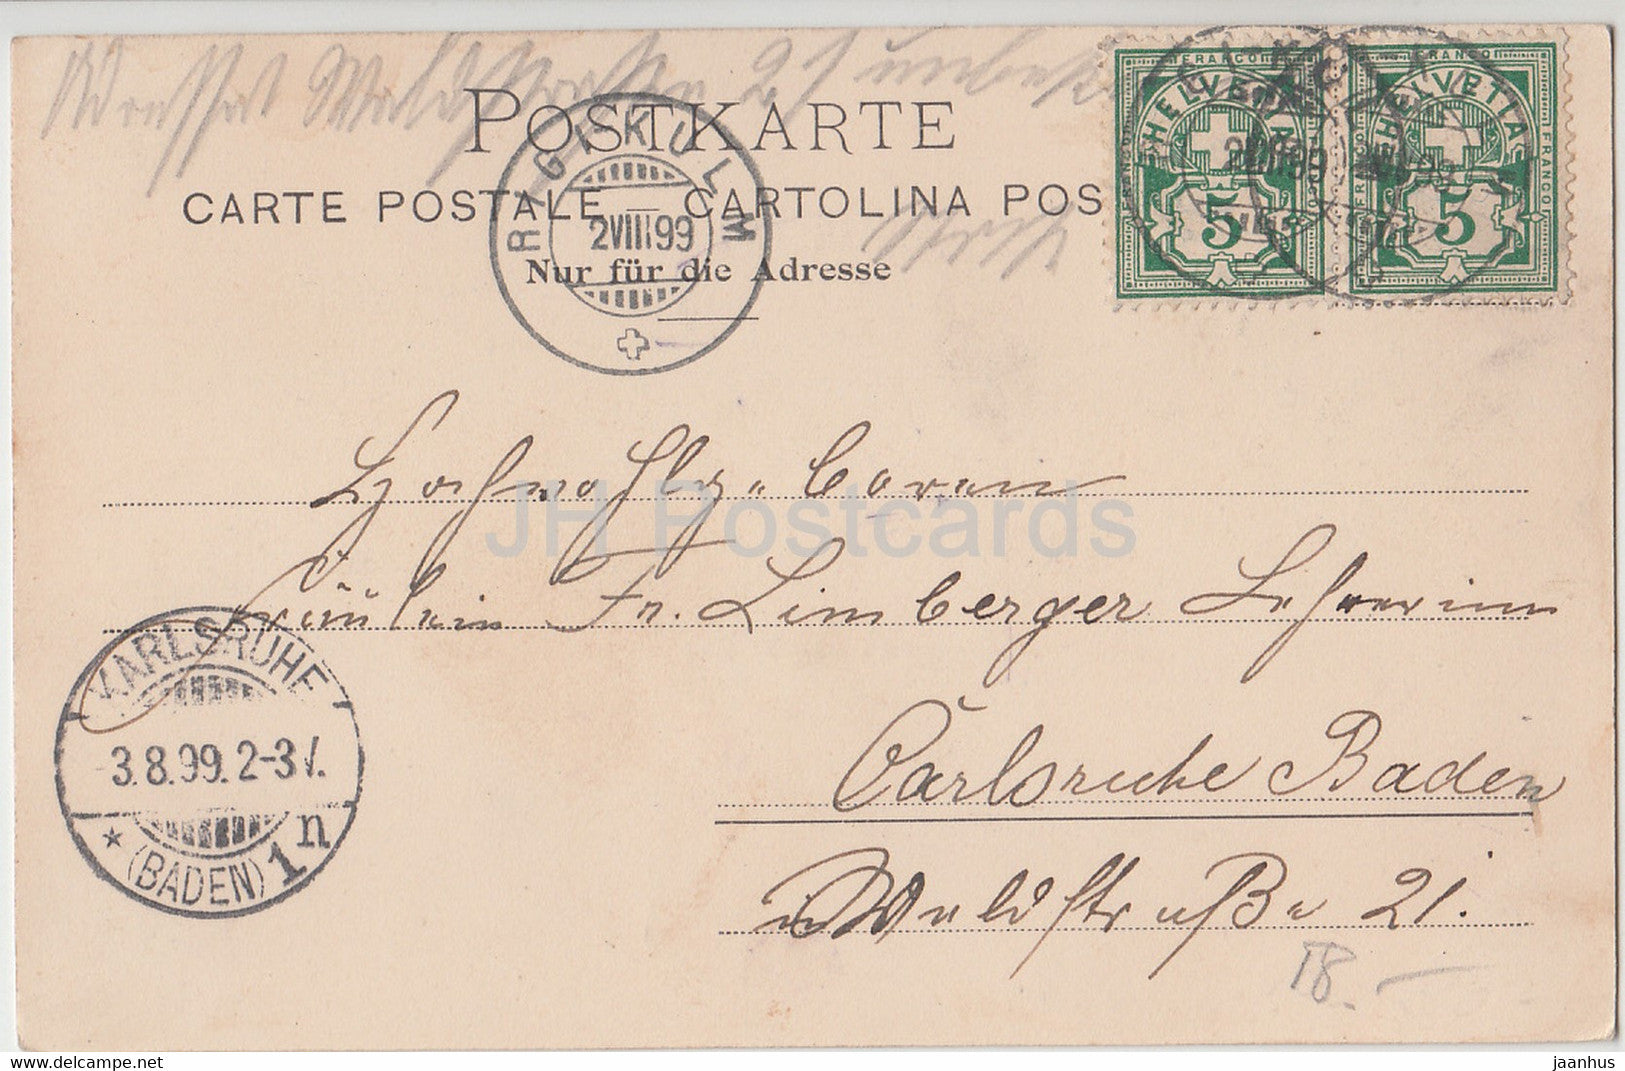 Waldstrasse 21 unbek
POSTKARTE
CARTE POSTALE — CARTOLINA POS
Nur für die Adresse
RIGI-KULM
2VIII99
FRANCO
HELVETIA
5
FRANCO
HELVETIA
5
Hochwohlgeboren
Fräulein Fr. Limberger Lehrerinn
Carlsruhe Baden
Waldstraße 21.
KARLSRUHE
3.8.99. 2-3
(BADEN) 1n
JH Postcards
58.—
www.delcampe.net
jaanhus